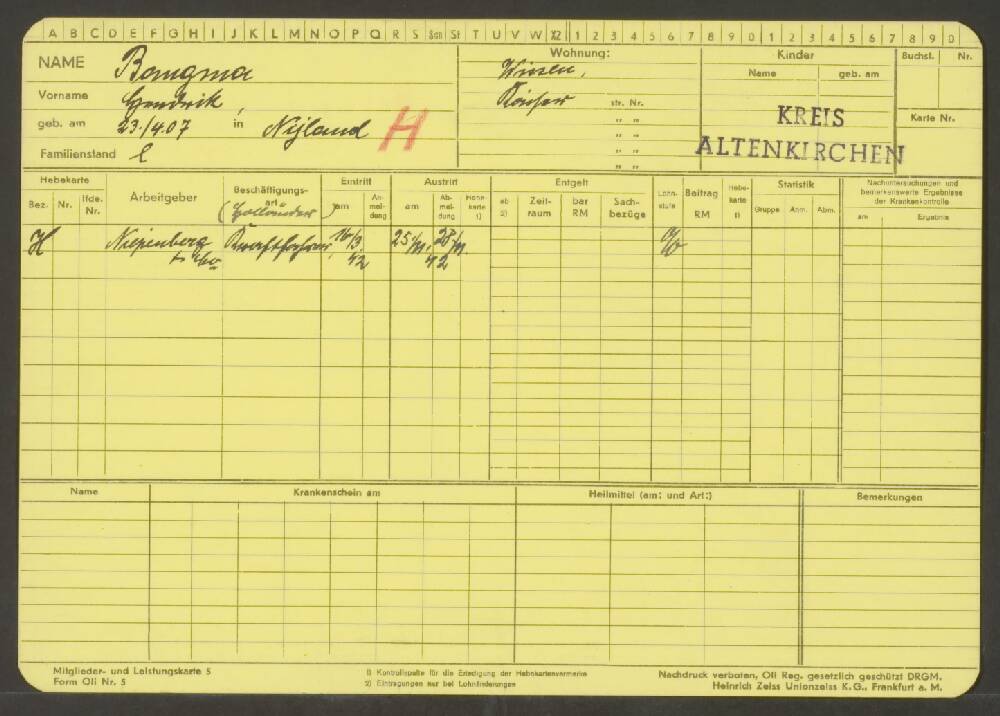 A B C D E F G H I J K L M N O P Q R S Sch St T U V W XZ 1 2 3 4 5 6 7 8 9 0 1 2 3 4 5 6 7 8 9 0
NAME
Vorname Hendrik,
geb. am 23./4.07 in Nijland H
Familienstand l
Wohnung:
Wissen,
str. Nr.
" "
" "
" "
" "
Kinder
Name geb. am
KREIS
ALTENKIRCHEN
Buchst. Nr.
Karte Nr.
Hebekarte
Bez. Nr. lfde. Nr.
Arbeitgeber
Beschäftigungs-
art
(Holländer)
Eintritt
am An-
mel-
dung
Austritt
am Ab-
mel-
dung
Entgelt
ab
2)
Zeit-
raum
bar
RM
Sach-
bezüge
Lohn-
stufe
Beitrag
RM
Hebe-
karte
1)
Statistik
Gruppe Anm. Abm.
Nachuntersuchungen und
bemerkenswerte Ergebnisse
der Krankenkontrolle
am Ergebnis
H Niepenberg Kraftfahrer 16/3. 25/11. 28/11.
42 42
Name Krankenschein am Heilmittel (am: und Art:) Bemerkungen
Mitglieder- und Leistungskarte S
Form Oli Nr. 5
1) Kontrollspalte für die Erledigung der Hebekartenvermerke
2) Eintragungen nur bei Lohnänderungen
Nachdruck verboten, Oli Reg. gesetzlich geschützt DRGM.
Heinrich Zeiss Unionzeiss K.G., Frankfurt a. M.